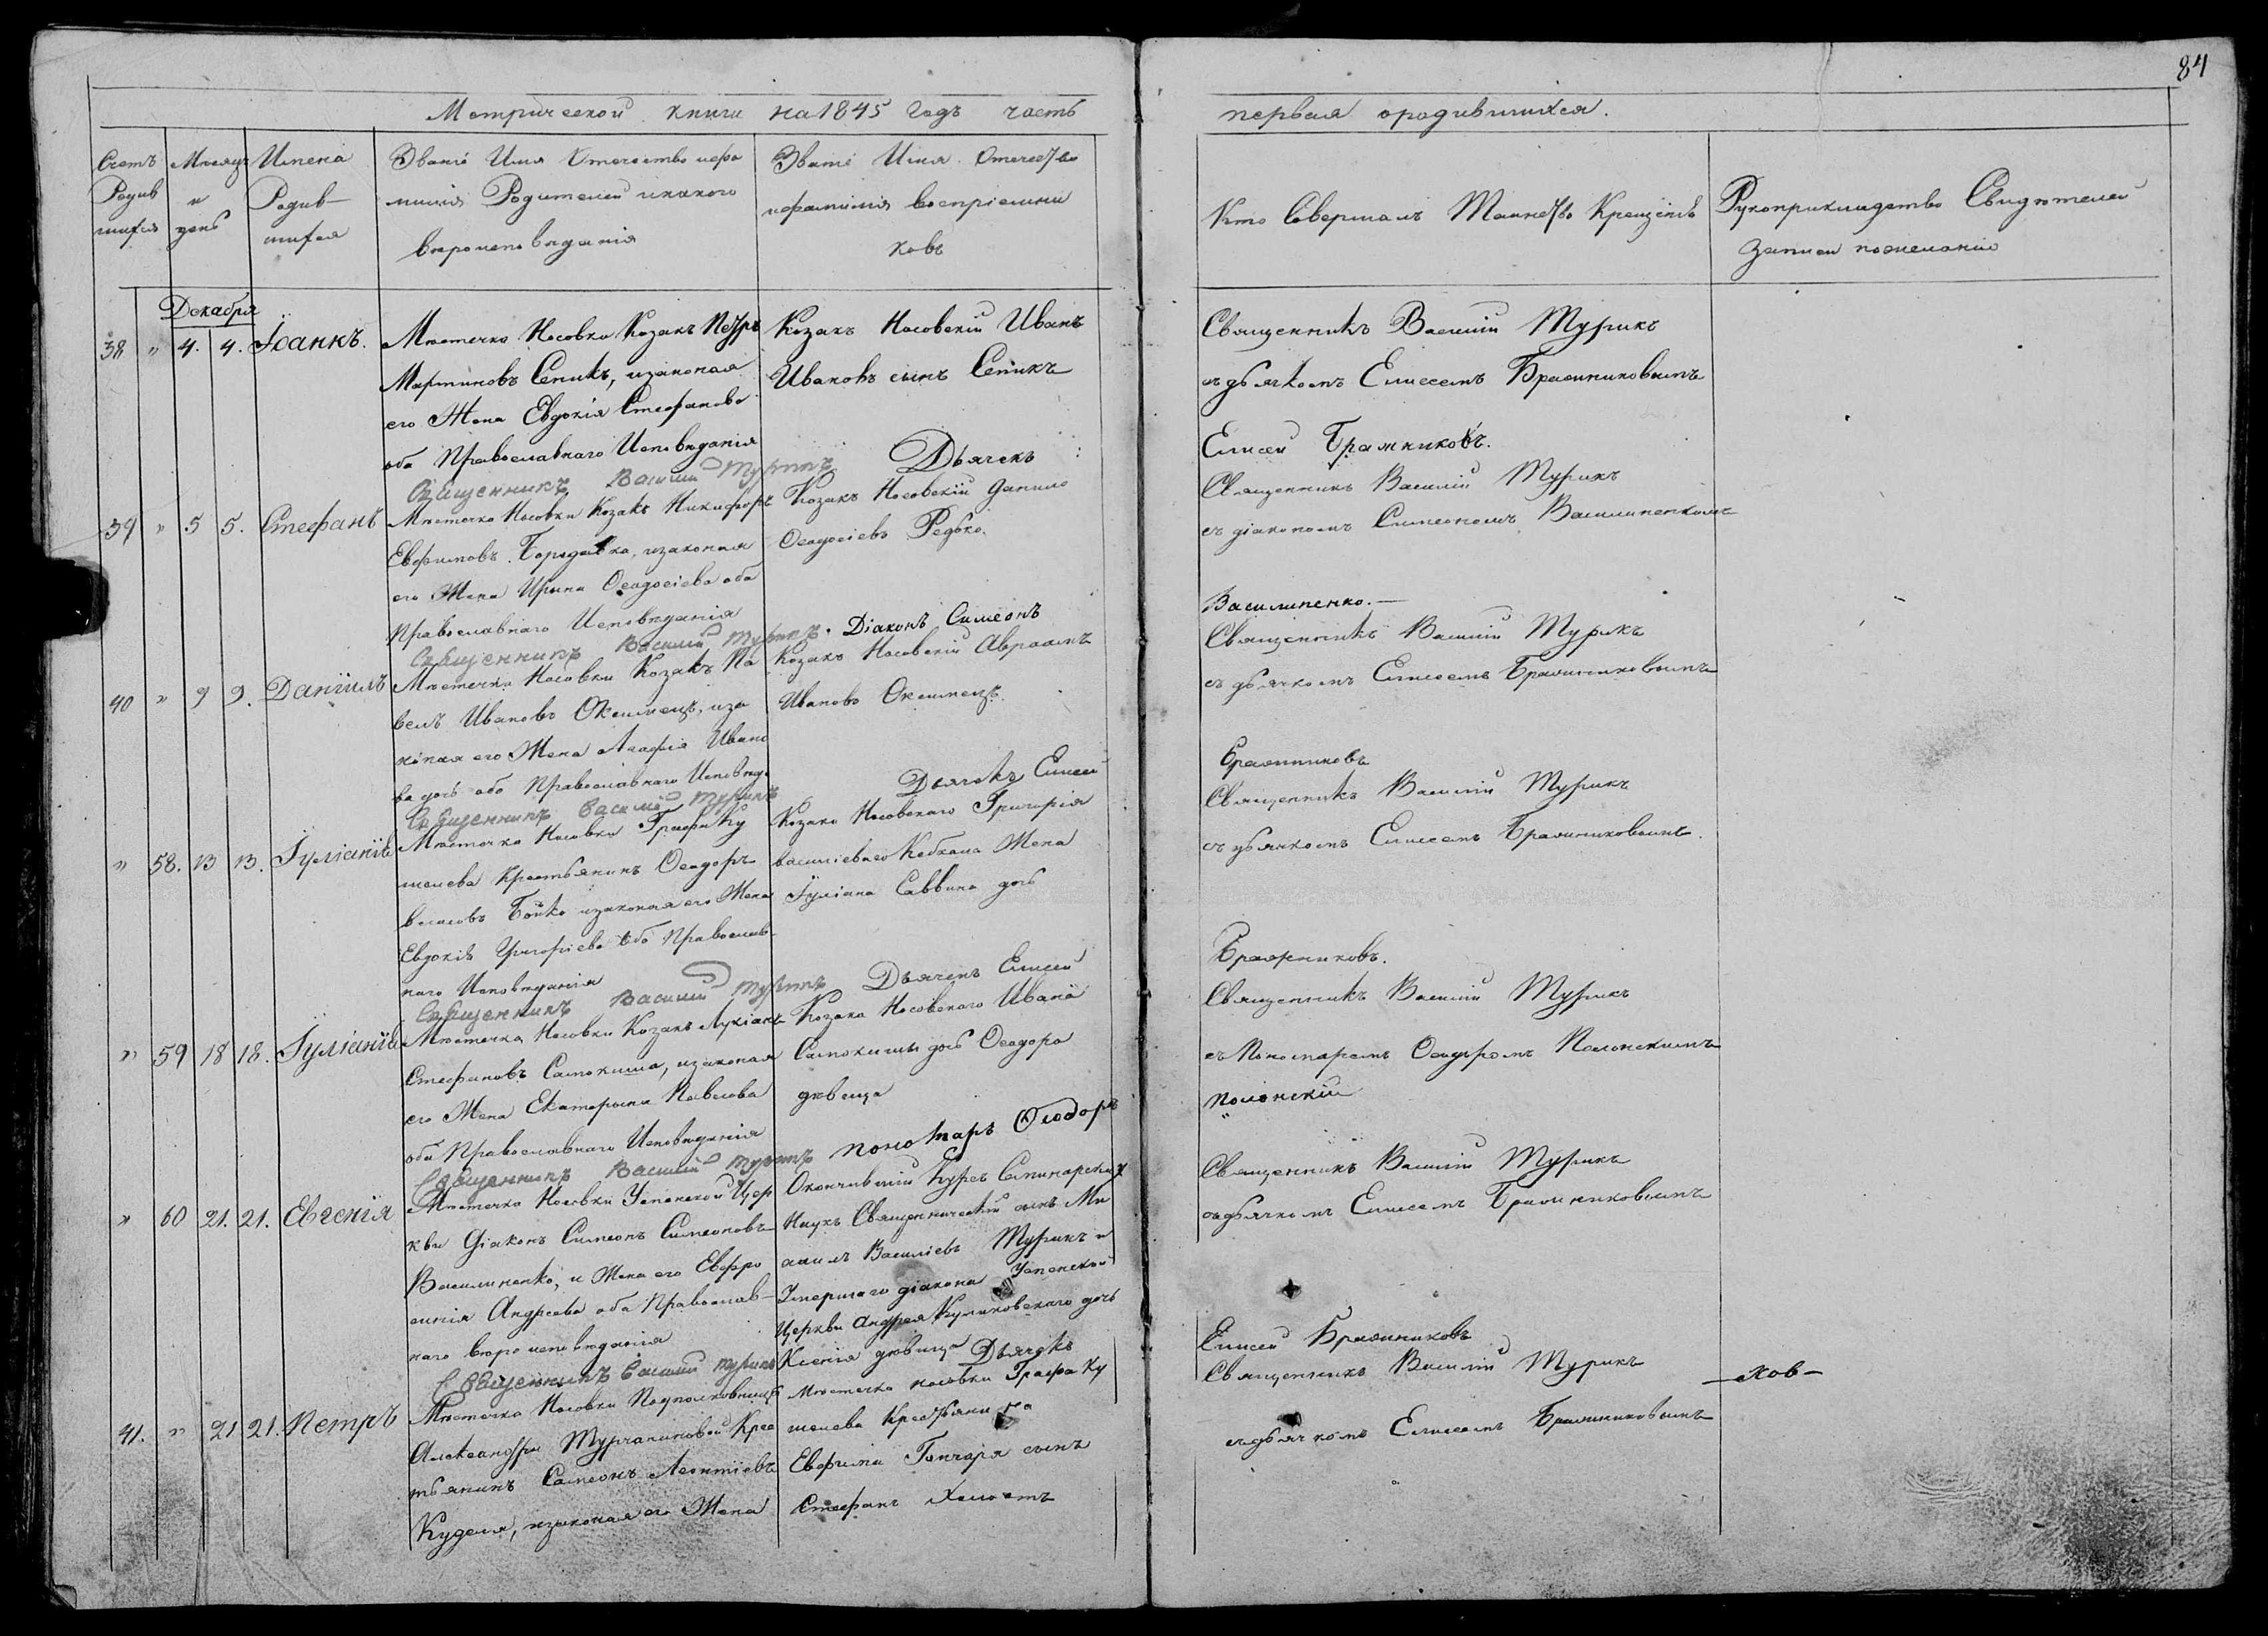 84
Метрической книги на 1845 годъ часть
первая о родившихся.
Счетъ Родив шихся
Месяцъ и день
Имена Родив- шихся
Званіе Имя Отечество и фа
милія Родителей и какого
вероисповеданія
Званіе Имя Отечество
и фамилія воспріемни
ковъ
Кто Совершалъ Таинство Крещенія
Рукоприкладство Свидетелей
записи по желанію
Декабря
38 " 4. 4. Іоаннъ.
Местечка Носовки Козакъ Петръ
Мартиновъ Сепикъ, и законая
его Жена Евдокія Стефанова
оба Православнаго Исповеданія
Священникъ Василій Турикъ
Козакъ Носовскій Иванъ
Ивановъ сынъ Сепикъ
Дьячекъ
Священникъ Василій Турикъ
съ дьячкомъ Елисеемъ Бражниковымъ
Елисей Бражниковъ.
39 " 5 5. Стефанъ
Местечка Носовки Козакъ Никифоръ
Евфимовъ Бородавка, и законая
его Жена Ирина Феодосіева оба
Православнаго Исповеданія
Священникъ Василій Турикъ.
Козакъ Носовскій Данило
Феодосіевъ Редько.
Діаконъ Симеонъ
Священникъ Василій Турикъ
съ діакономъ Симеономъ Василиненкомъ
Василиненко.—
40 " 9 9. Даніилъ
Местечка Носовки Козакъ Па
велъ Ивановъ Окснмецъ, и за
коная его Жена Агафія Ивано
ва дочь оба Православнаго Исповед.
Священникъ Василій Турикъ
Козакъ Носовскій Авраамъ
Ивановъ
Дьячекъ Елисей
Священникъ Василій Турикъ
съ дьячкомъ Елисеемъ Бражниковымъ
Бражниковъ
" 58. 13 13. Іуліанія
Местечка Носовки Графа Ку
шелева Крестьянинъ Феодоръ
Власовъ Бойко и законая его Жена
Евдокія Григоріева оба Православ-
наго Исповеданія
Священникъ Василій Турикъ
Козака Носовскаго Григорія
Василіева Жена
Іуліана Саввина дочь
Дьячекъ Елисей
Священникъ Василій Турикъ
съ дьячкомъ Елисеемъ Бражниковымъ.
Бражниковъ.
" 59 18 18. Іуліанія
Местечка Носовки Козакъ Лукіанъ
Стефановъ Самокиша, и законая
его Жена Екатерина Павлова
оба Православнаго Исповеданія
Священникъ Василій Турикъ
Козака Носовскаго Ивана
Самокиши дочь Феодора
девица
Пономаръ Феодоръ
Священникъ Василій Турикъ
съ Пономаремъ Феодоромъ Полонскимъ
Полонскій
" 60 21. 21. Евгенія
Местечка Носовки Успенской Цер
кви Діаконъ Симеонъ Симеоновъ
Василиненко, и Жена его Евфро
синія Андреева оба Православ-
наго вероисповеданія
Священникъ Василій Турикъ
Окончившій Курсъ Семинарскихъ
Наукъ Священническій сынъ Ми
хаилъ Василіевъ Турикъ и
Умершаго діакона Успенской
Церкви Андрея Куликовскаго дочь
Ксенія девица Дьячекъ
Священникъ Василій Турикъ
съ дьячкомъ Елисеемъ Бражниковымъ
Елисей Бражниковъ
41. " 21 21. Петръ
Местечка Носовки Подполковницы
Александры Турчаниновой Крес
тьянинъ Симеонъ Леонтіевъ
Куделя, и законая его Жена
Местечка Носовки Графа Ку
шелева Крестьянина
Евфимія Гончаря сынъ
Стефанъ Холостъ
Священникъ Василій Турикъ
съ дьячкомъ Елисеемъ Бражниковымъ
—ков—